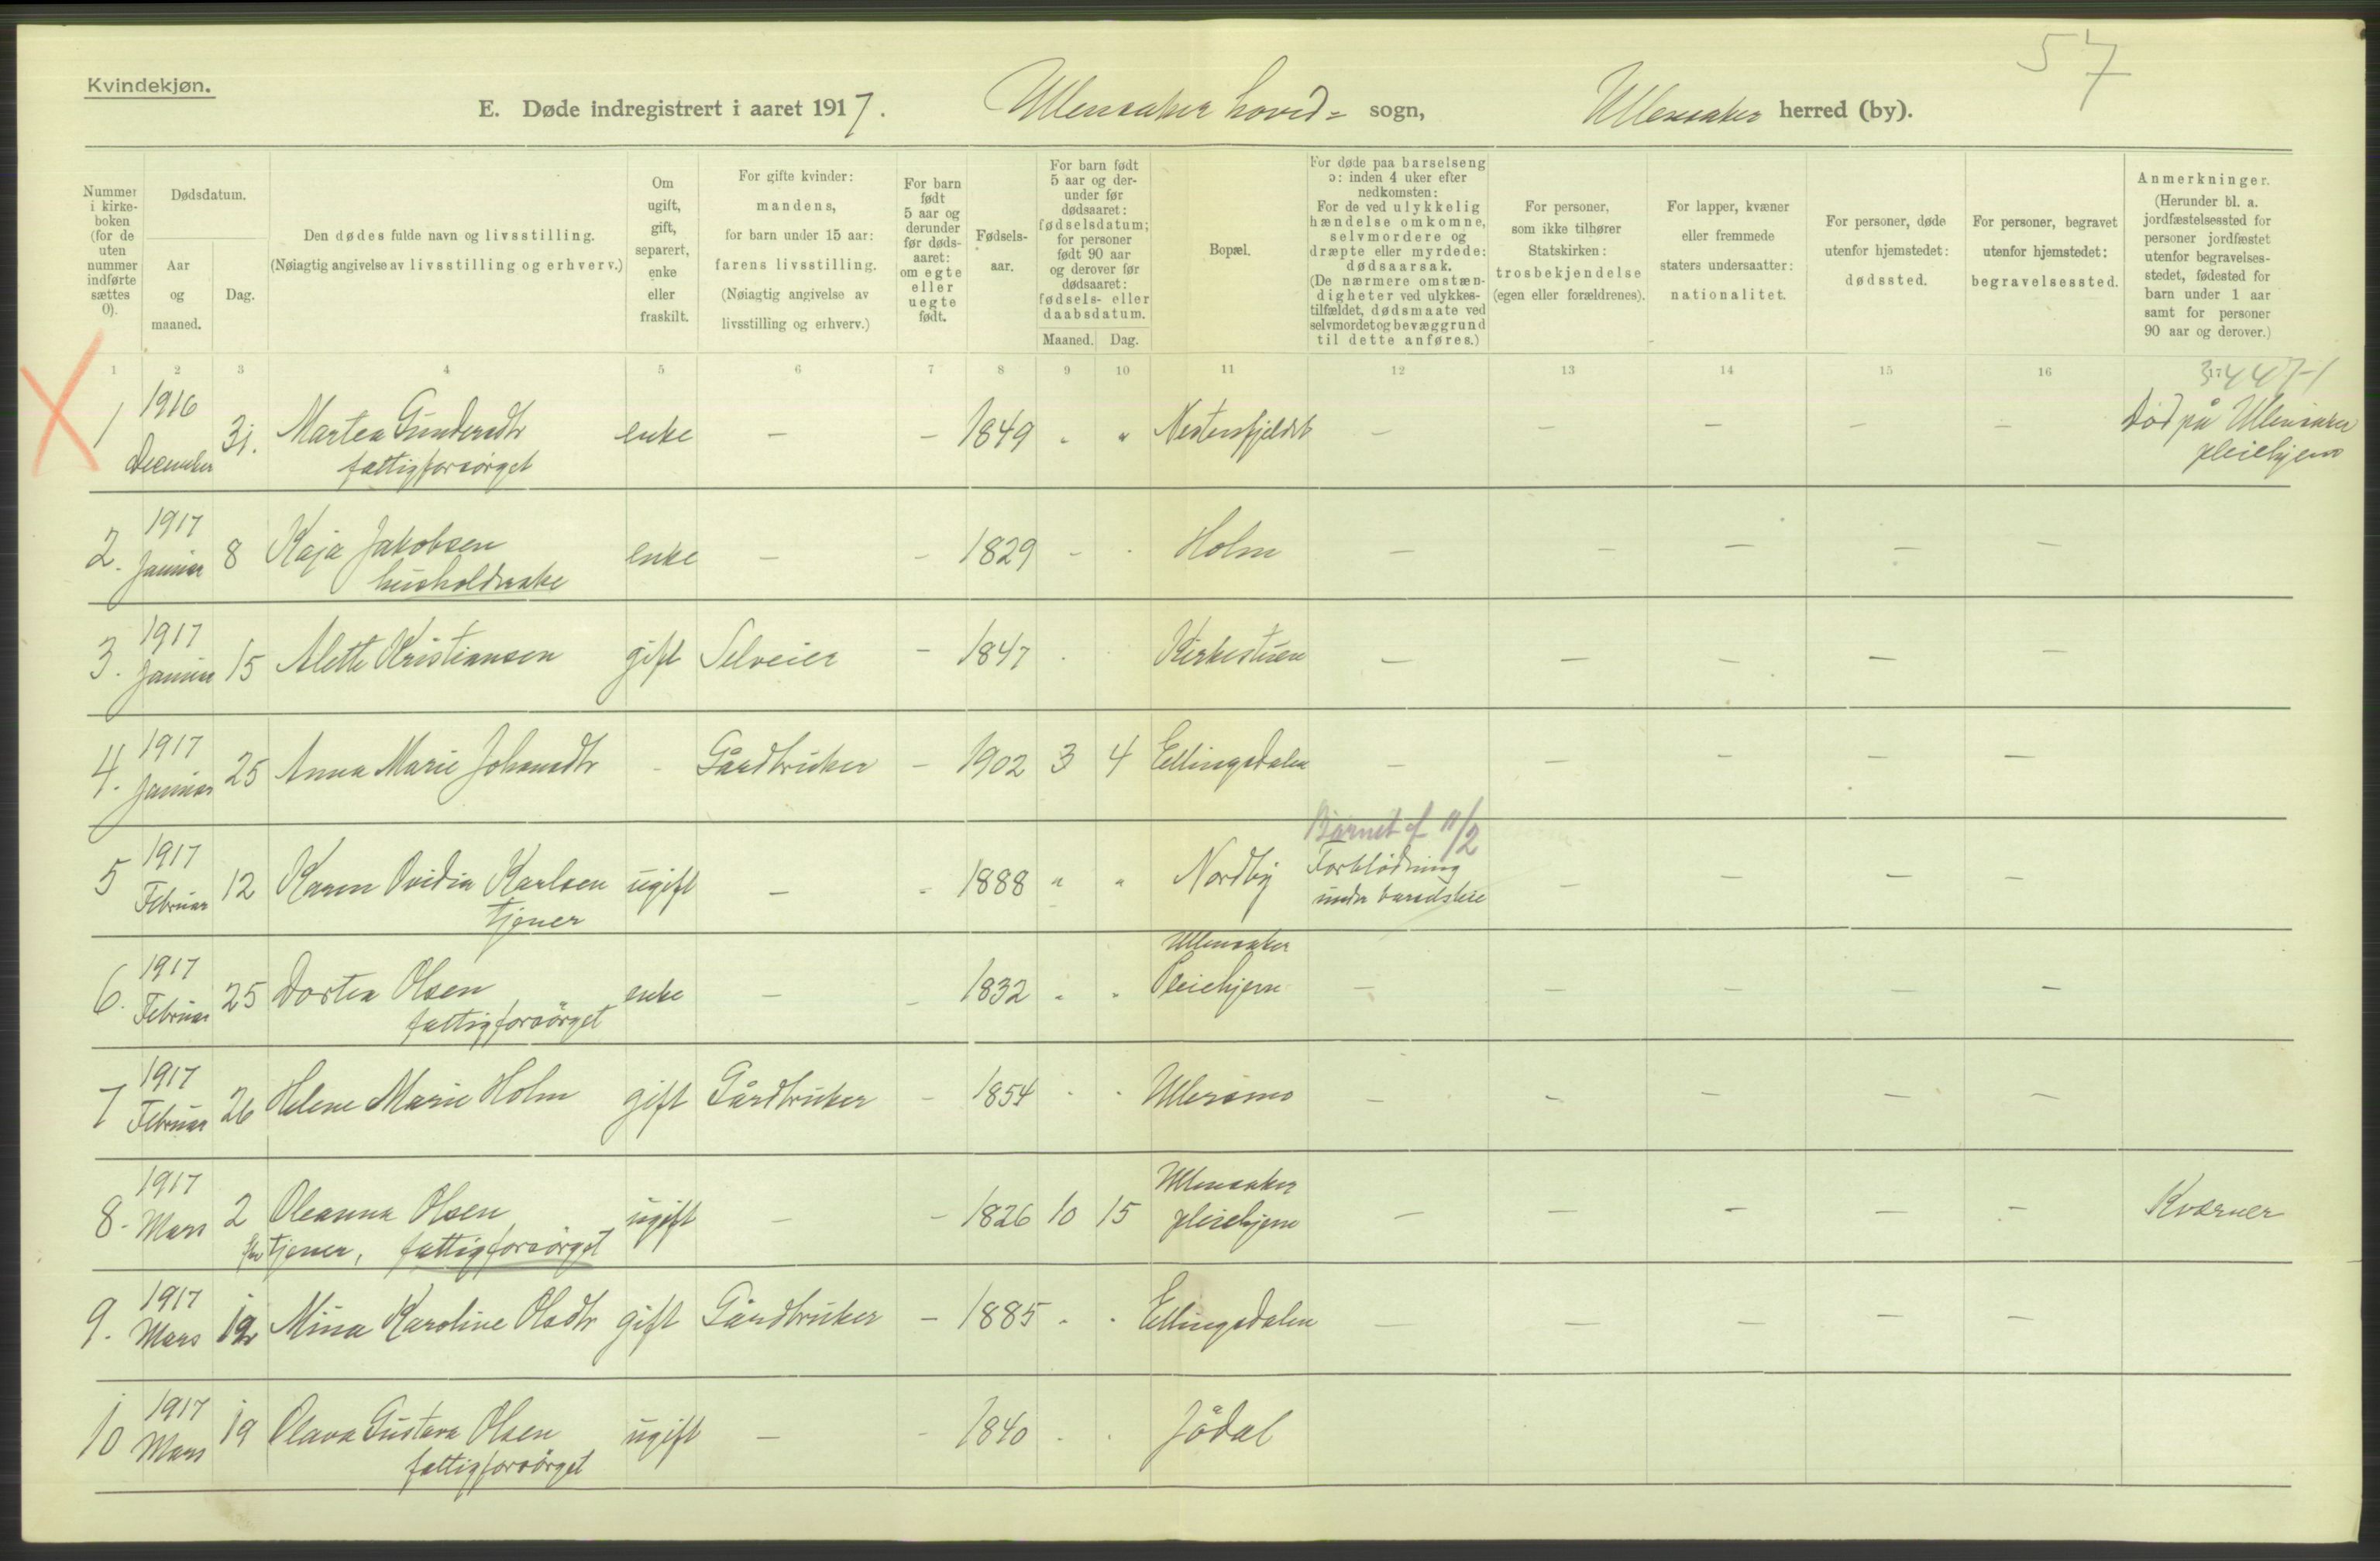 57
Kvindekjøn.
E. Døde indregistrert i aaret 1917. Ullensaker hoved= sogn, Ullensaker herred (by).
Nummer i kirke-boken (for de uten nummer indførte sættes 0).
Dødsdatum.
Aar og maaned.
Dag.
Den dødes fulde navn og livsstilling.
(Nøiagtig angivelse av livsstilling og erhverv.)
Om ugift, gift, separert, enke eller fraskilt.
For gifte kvinder: mandens, for barn under 15 aar: farens livsstilling. (Nøiagtig angivelse av livsstilling og erhverv.)
For barn født 5 aar og derunder før døds-aaret: om egte eller uegte født.
Fødsels-aar.
For barn født 5 aar og der-under før dødsaaret: fødselsdatum; for personer født 90 aar og derover før dødsaaret: fødsels- eller daabsdatum.
Maaned. Dag.
Bopæl.
For døde paa barselseng ɔ: inden 4 uker efter nedkomsten: For de ved ulykkelig hændelse omkomne, selvmordere og dræpte eller myrdede: dødsaarsak. (De nærmere omstæn-digheter ved ulykkes-tilfældet, dødsmaate ved selvmordet og bevæggrund til dette anføres.)
For personer, som ikke tilhører Statskirken: trosbekjendelse (egen eller forældrenes).
For lapper, kvæner eller fremmede staters undersaatter: nationalitet.
For personer, døde utenfor hjemstedet: dødssted.
For personer, begravet utenfor hjemstedet: begravelsessted.
Anmerkninger. (Herunder bl. a. jordfæstelsessted for personer jordfæstet utenfor begravelses-stedet, fødested for barn under 1 aar samt for personer 90 aar og derover.)
1 2 3 4 5 6 7 8 9 10 11 12 13 14 15 16 17
1 1916 December 31. Martea Gundersdtr enke – – 1849 " " – – – – – Død på Ullensaker
fattigforsørget pleiehjem
2. 1917 Januar 8 Kaja Jakobsen enke – – 1829 - - Holm – – – – –
husholderske
3. 1917 Januar 15 Alette Kristiansen gift Selveier – 1847 - Kirkestuen – – – – –
4. 1917 Januar 25 Anna Marie Johansdtr - Gårdbruker – 1902 3 4 Ellingsdalen – – – – –
5 1917 Februar 12 Karen Ovidia Karlsen ugift – - 1888 " " Nordby Barnet f 11/2 – – – –
tjener Forblödning
under barselseie
6. 1917 Februar 25 Dortea Olsen enke – – 1832 " " Ullensaker – – – – –
fattigforsörget Pleiehjem
7 1917 Februar 26 Helene Marie Holm gift Gårdbruker – 1854 - - – – – – –
8. 1917 Mars 2 Oleanna Olsen ugift – – 1826 10 15 Ullensaker – – – – – Kværner
tjener, fattigforsörget pleiehjem
9. 1917 Mars 12 Mina Karoline Olsdtr gift Gårdbruker – 1885 - - Ellingsdalen – – – – –
10 1917 Mars 19 Olava Gustava Olsen ugift – - 1840 - - Jödal
fattigforsörget